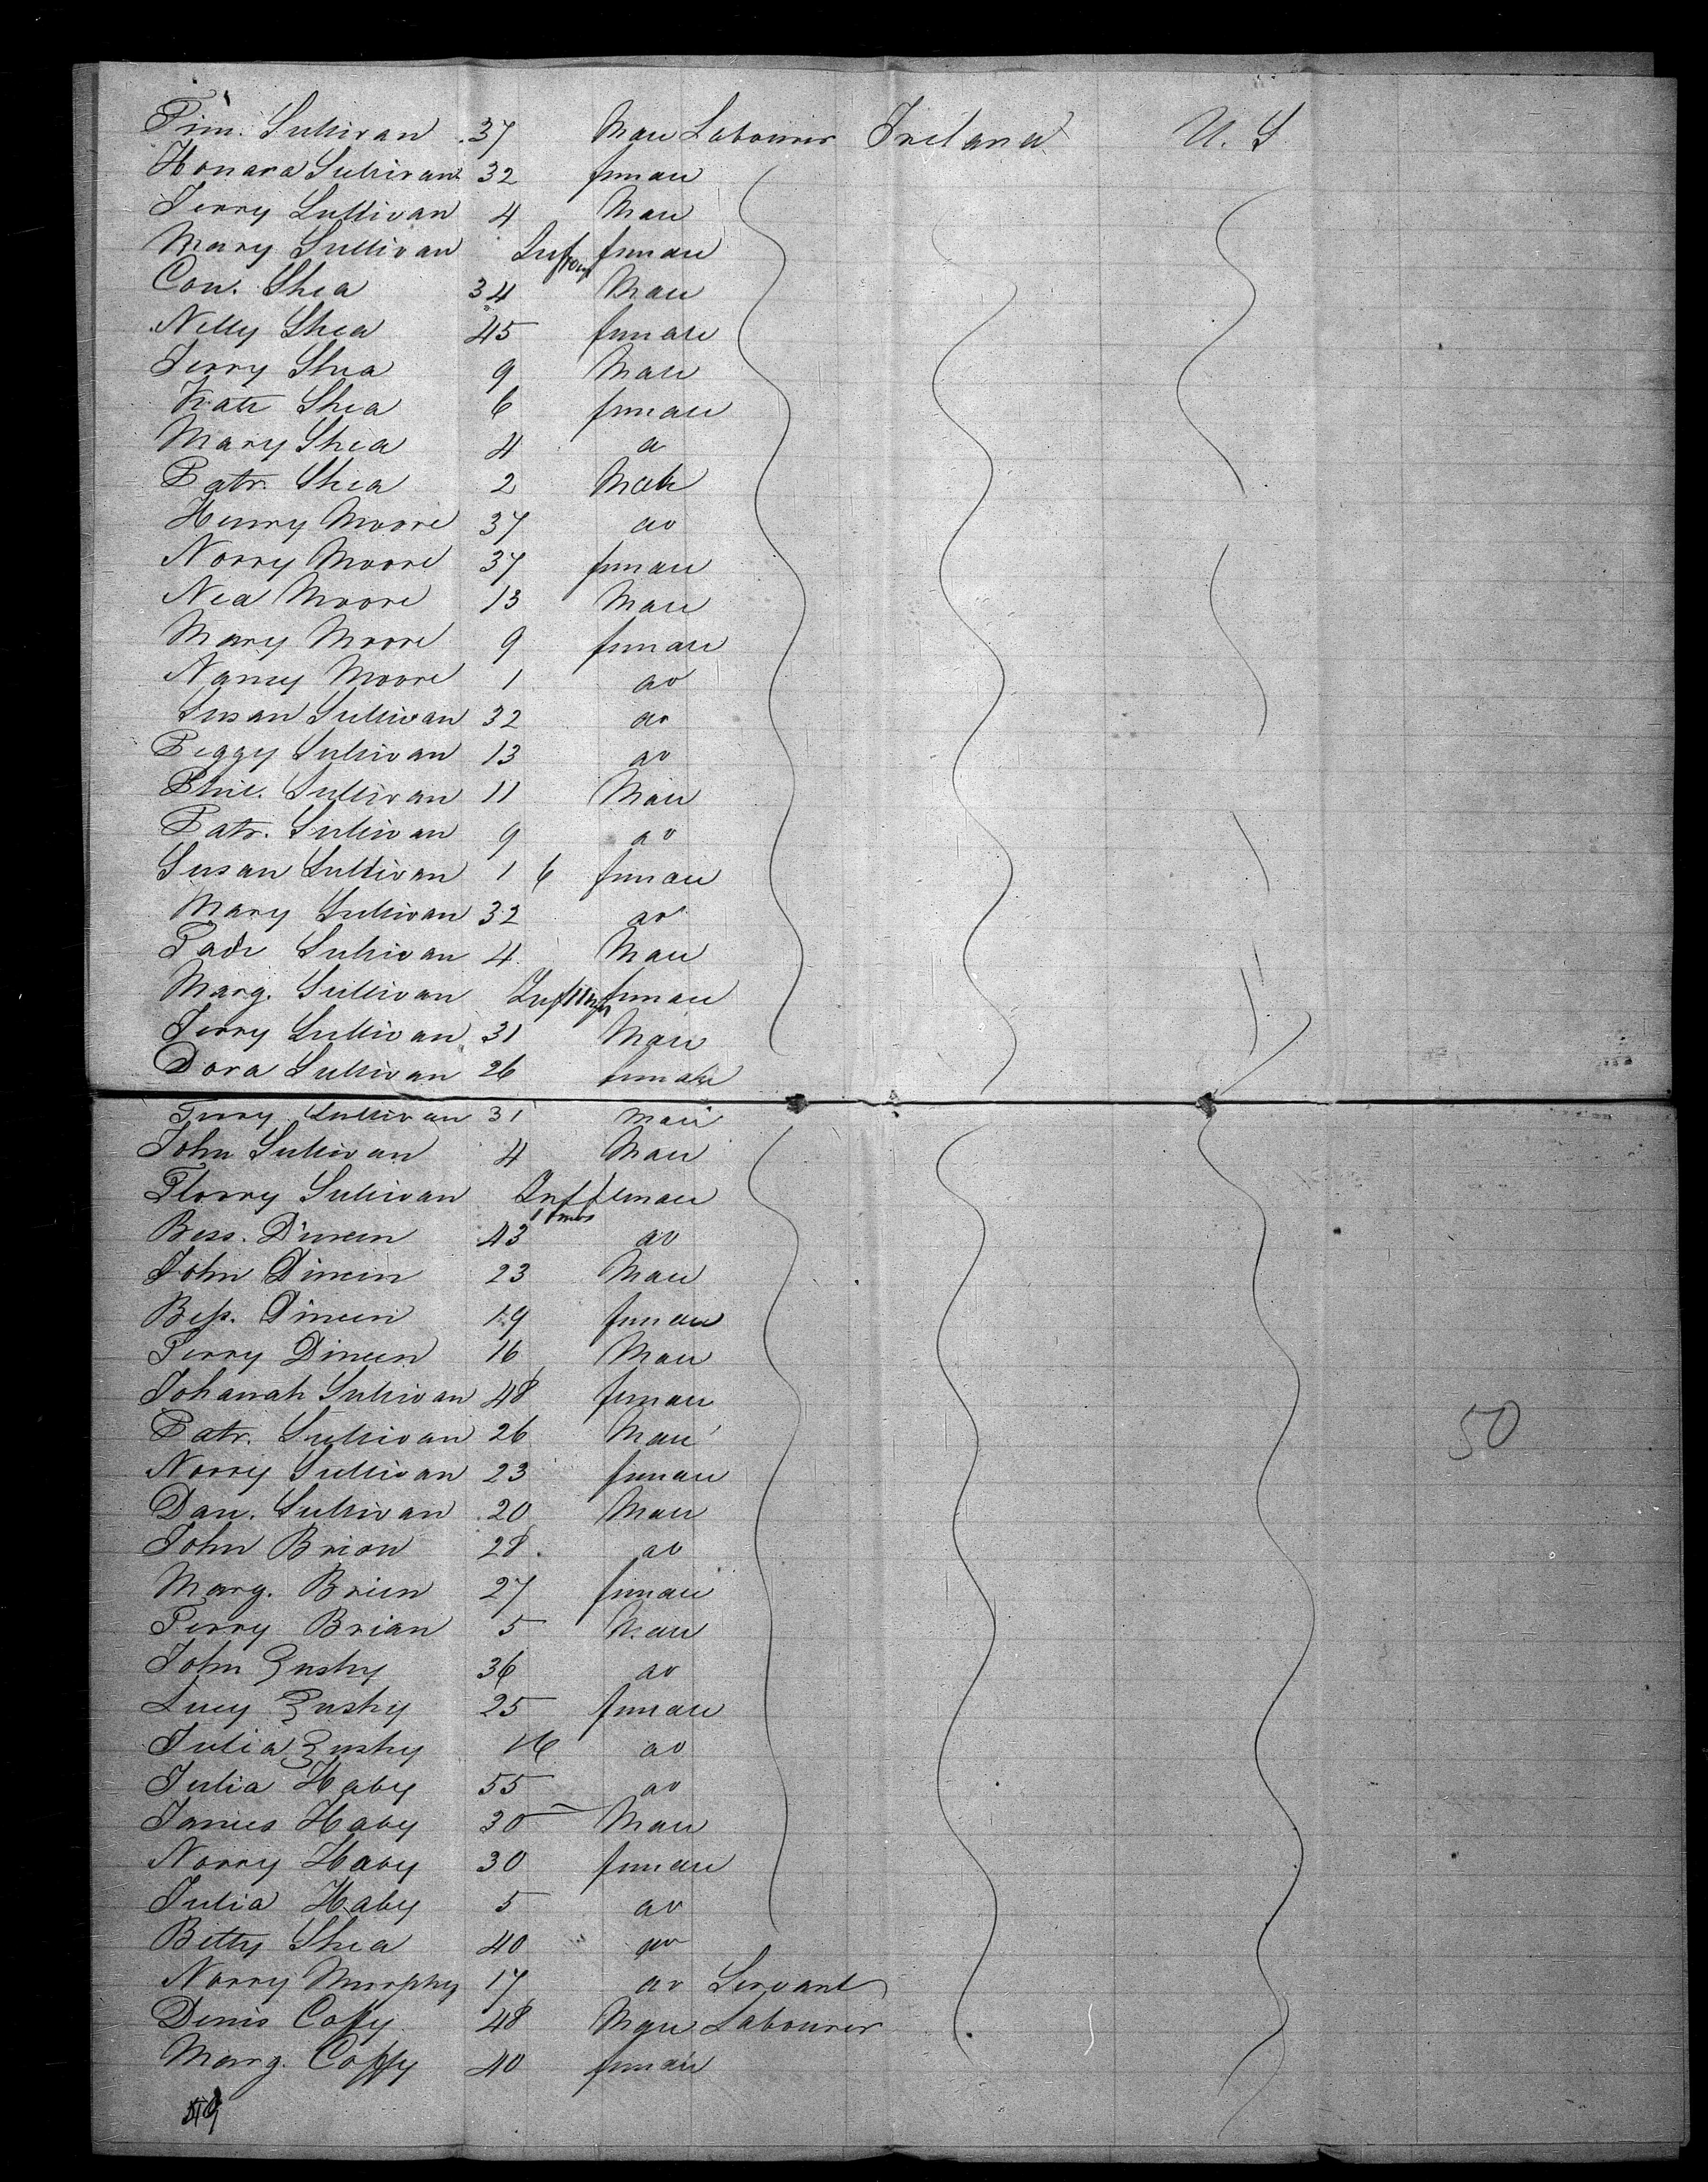 Tim. Sullivan 37 Male Labourer Ireland U. S
Honara Sullivan 32 female
Jerry Sullivan 4 Male
Mary Sullivan Inf female
Con. Shea 34 Male
Nelly Shea 45 female
Jerry Shea 9 Male
Kate Shea 6 female
Mary Shea 4 do
Patr. Shea 2 Male
Henry Moore 37 do
Norry Moore 37 female
Ned Moore 13 Male
Mary Moore 9 female
Nancy Moore 1 do
Susan Sullivan 32 do
Peggy Sullivan 13 do
Phil. Sullivan 11 Male
Patr. Sullivan 9 do
Susan Sullivan 1 6 female
Mary Sullivan 32 do
Sullivan 4 Male
Marg. Sullivan Inf 11 mos female
Jerry Sullivan 31 Male
Dora Sullivan 26 female
Jerry Sullivan 31 Male
John Sullivan 4 Male
Florry Sullivan Inf female
mos
Bess. Dineen 43 do
John Dineen 23 Male
Bess. Dineen 19 female
Jerry Dineen 16 Male
Johanah Sullivan 48 female
Patr. Sullivan 26 Male
Norry Sullivan 23 female
Dan. Sullivan 20 Male
John Brion 28 do
Marg. Brien 27 female
Jerry Brian 5 Male
John 36 do
Lucy 25 female
Julia 16 do
Julia Haby 55 do
James Haby 30 Male
Norry Haby 30 female
Julia Haby 5 do
Betty Shea 40 do
Norry Murphy 17 do Servant
Denis Coffy 48 Male Labourer
Marg. Coffy 40 female
50
49